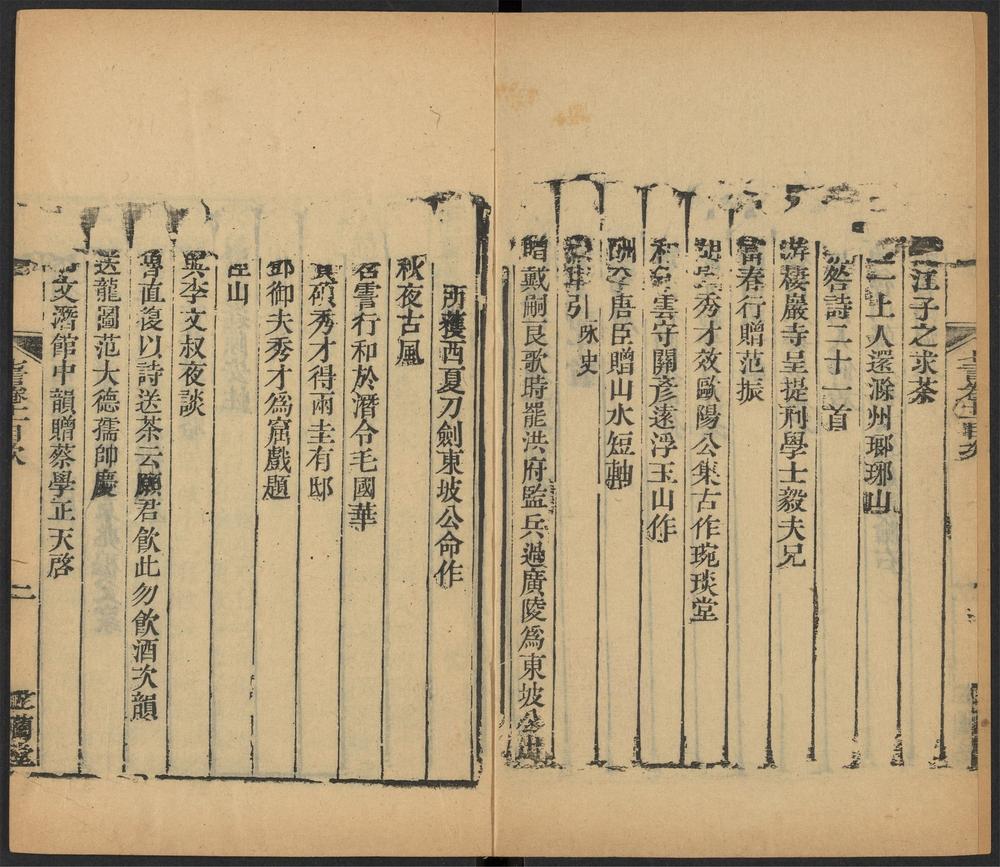 江子之求茶
上人還滁州瑯琊山
咎詩二十一首
游棲巖寺呈提刑學士毅夫兄
富春行贈范振
秀才效歐陽公集古作琬琰堂
和 雲守關彥遠浮玉山作
酬 唐臣贈山水短軸
引 咏史
贈戴嗣良歌時罷洪府監兵過廣陵爲東坡公出
所獲西夏刀劍東坡公命作
秋夜古風
苕霅行和於潛令毛國華
碩秀才得兩圭有邸
御夫秀才爲窟戲題
山
與李文叔夜談
魯直復以詩送茶云願君飲此勿飲酒次韻
送龍圖范大德孺帥慶
文潛館中韻贈蔡學正天啓
目次
二
蘭堂